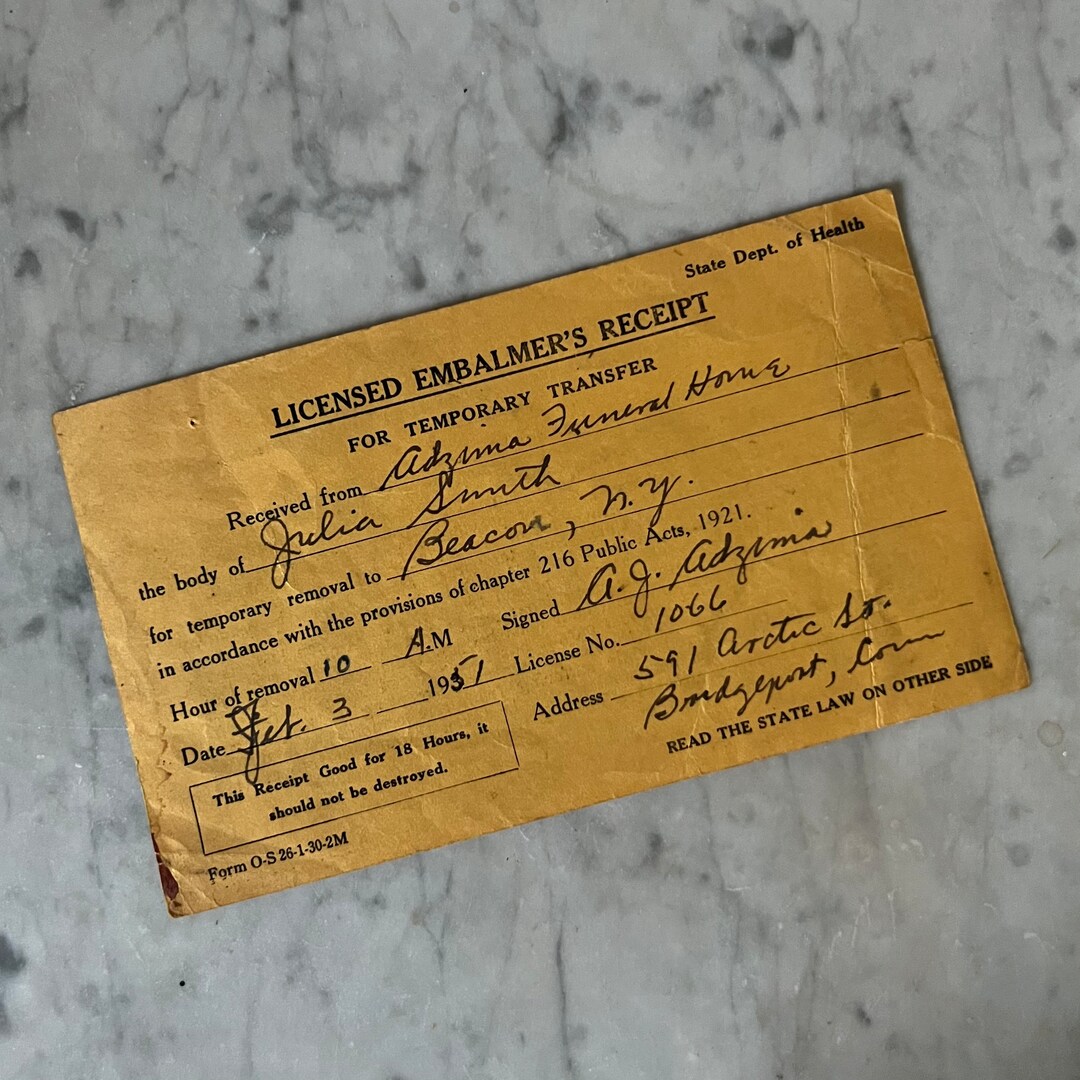 State Dept. of Health
LICENSED EMBALMER'S RECEIPT
FOR TEMPORARY TRANSFER
Received from Adzima Funeral Home
the body of Julia Smith
for temporary removal to Beacon, N.Y.
in accordance with the provisions of chapter 216 Public Acts, 1921.
Hour of removal 10 A.M Signed A. J. Adzima
Date Feb. 3 1951 License No. 1066
Address 591 Arctic St.
Bridgeport, Conn
This Receipt Good for 18 Hours, it
should not be destroyed.
READ THE STATE LAW ON OTHER SIDE
Form O-S 26-1-30-2M